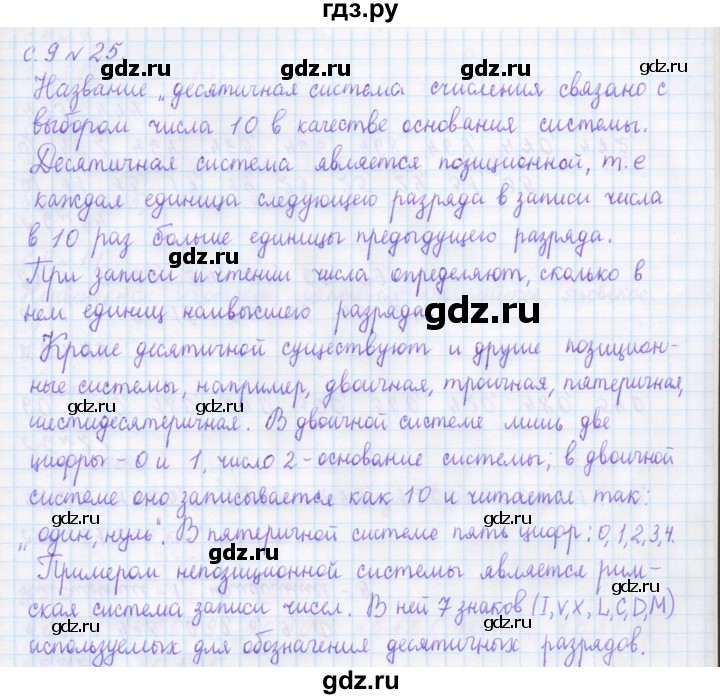 гдз.ру
с. 9 № 25
gdz.ru gdz.ru gdz.ru
Название „десятичная система счисления связано с
выбором числа 10 в качестве основания системы.
gdz.ru gdz.ru
Десятичная система является позиционной, т.е
gdz.ru gdz.ru
каждая единица следующего разряда в записи числа
в 10 раз больше единицы предыдущего разряда.
gdz.ru gdz.ru
При записи и чтении числа определяют, сколько в
нем единиц наивысшего разряда
gdz.ru gdz.ru
Кроме десятичной существуют и другие позицион-
ные системы, например, двоичная, троичная, пятеричная,
gdz.ru gdz.ru gdz.ru
шестидесятеричная. В двоичной системе лишь две
цифры - 0 и 1, число 2 - основание системы; в двоичной
gdz.ru gdz.ru
системе оно записывается как 10 и читается так:
gdz.ru gdz.ru gdz.ru
„один, нуль". В пятеричной системе пять цифр: 0,1,2,3,4.
Примером непозиционной системы является рим-
gdz.ru gdz.ru
ская система записи чисел. В ней 7 знаков (I,V,X,L,C,D,M)
используемых для обозначения десятичных разрядов.
gdz.ru gdz.ru gdz.ru
гдз.ру